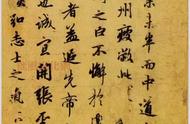 業未半而中道
州疲敝此
之臣不懈於
者蓋追先帝
也誠宜開張
志士之氣